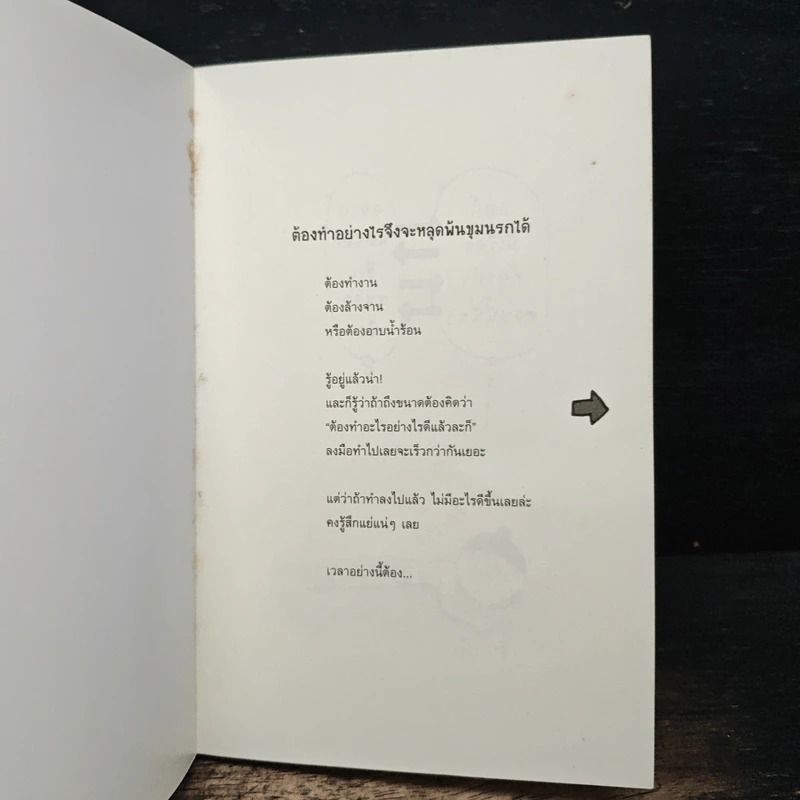 ต้องทำอย่างไรจึงจะหลุดพ้นขุมนรกได้
ต้องทำงาน
ต้องล้างจาน
หรือต้องอาบน้ำร้อน
รู้อยู่แล้วน่า!
และก็รู้ว่าถ้าถึงขนาดต้องคิดว่า
“ต้องทำอะไรอย่างไรดีแล้วละก็”
ลงมือทำไปเลยจะเร็วกว่ากันเยอะ
แต่ว่าถ้าทำลงไปแล้ว ไม่มีอะไรดีขึ้นเลยล่ะ
คงรู้สึกแย่แน่ๆ เลย
เวลาอย่างนี้ต้อง...